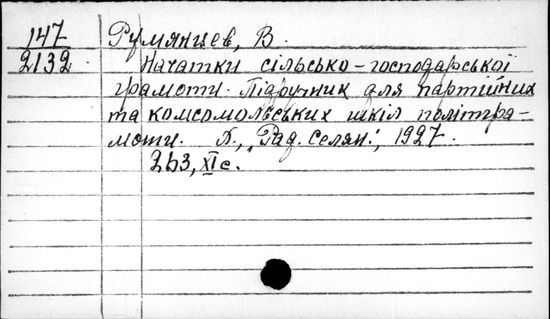 147 Румянцев, В.
2132 Начатки сільсько-господарської
грамоти. Підручник для партійних
та комсомольських шкіл політгра-
моти. Х., „Рад. селян.", 1927.
263, XI с.